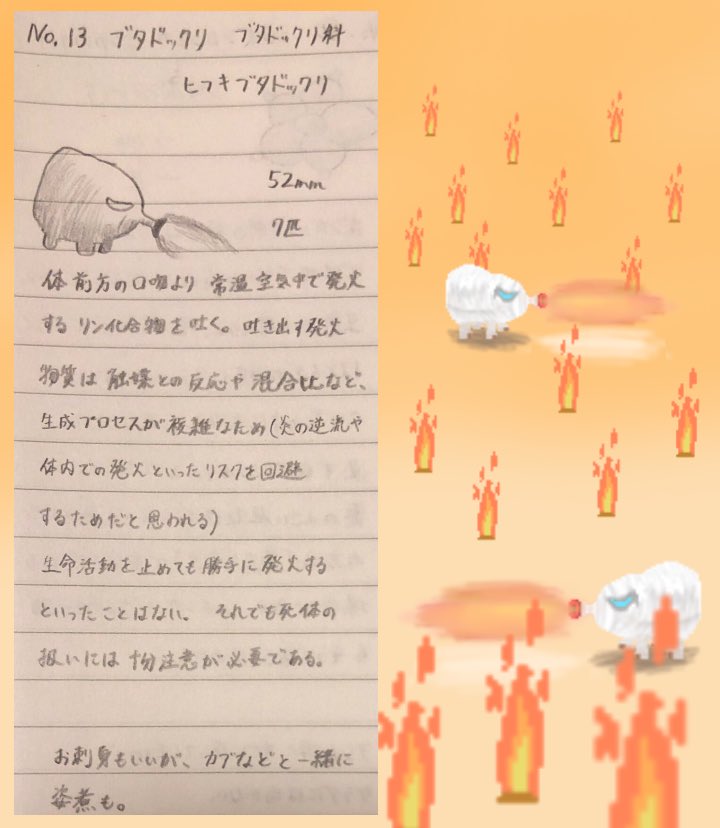 No. 13 ブタドックリ ブタドックリ科
ヒフキブタドックリ
52mm
7匹
体前方の口吻より 常温空気中で発火
する リン化合物を吐く。吐き出す発火
物質は 触媒との反応や 混合比など、
生成プロセスが複雑なため(炎の逆流や
体内での発火といったリスクを回避
するためだと思われる)
生命活動を止めても勝手に発火する
といったことはない。 それでも死体の
扱いには十分注意が必要である。
お刺身もいいが、カブなどと一緒に
姿煮も。